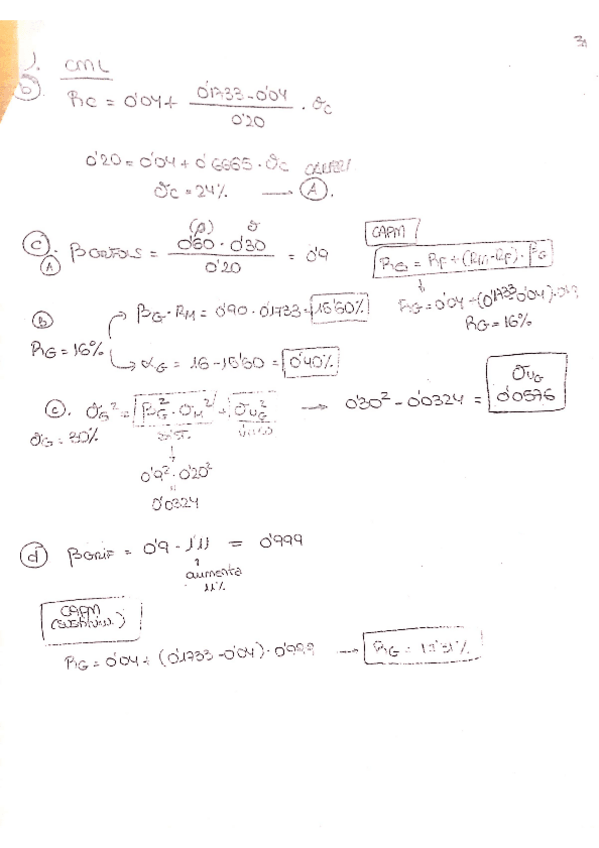 31
1. CML
b) RC = 0'04 + (0'1733 - 0'04) / 0'20 · σC
0'20 = 0'04 + 0'6665 · σC
σC = 24% → (A).
(C). (A) βGRIFOLS = (ρ) 0'60 · σ 0'30 / 0'20 = 0'9
CAPM
RG = RF + (RM - RF) · βG
RG = 0'04 + (0'1733 - 0'04) · 0'9
RG = 16%
(B) βG · RM = 0'90 · 0'1733 = 15'60%
RG = 16%
αG = 16 - 15'60 = 0'40%
(c). σG² = βG² · σM² + σUG² → 0'30² - 0'0324 = σUG² 0'0576
σG = 30%
0'9² · 0'20²
=
0'0324
(d) βGRIF = 0'9 · 1'11 = 0'999
aumenta
11%
CAPM
RG = 0'04 + (0'1733 - 0'04) · 0'999 → RG = 17'31%